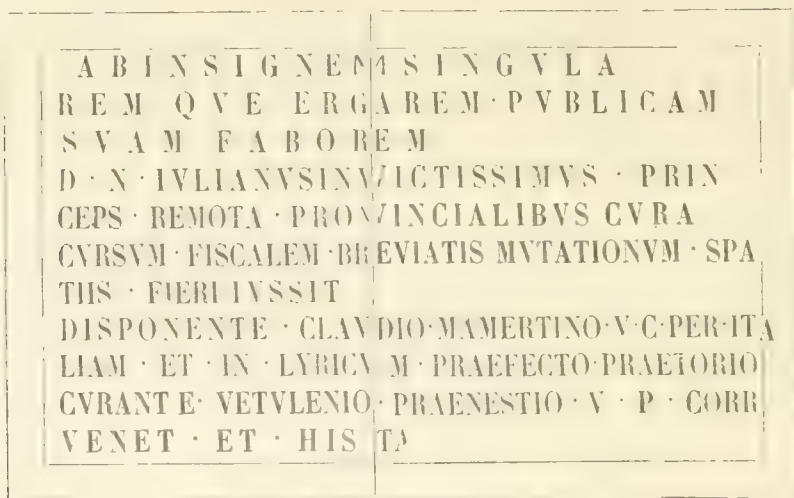 ABINSIGNEMSINGVLA
REM QVE ERGAREM · PVBLICAM
SVAM FABOREM
D · N · IVLIANVSINVICTISSIMVS · PRIN
CEPS · REMOTA · PROVINCIALIBVS CVRA
CVRSVM · FISCALEM · BREVIATIS MVTATIONVM · SPA
TIIS · FIERI IVSSIT
DISPONENTE · CLAVDIO · MAMERTINO · V · C · PER · ITA
LIAM · ET · IN · LYRICV M · PRAEFECTO · PRAETORIO
CVRANT E · VETVLENIO · PRAENESTIO · V · P · CORR
VENET · ET · HIS TA